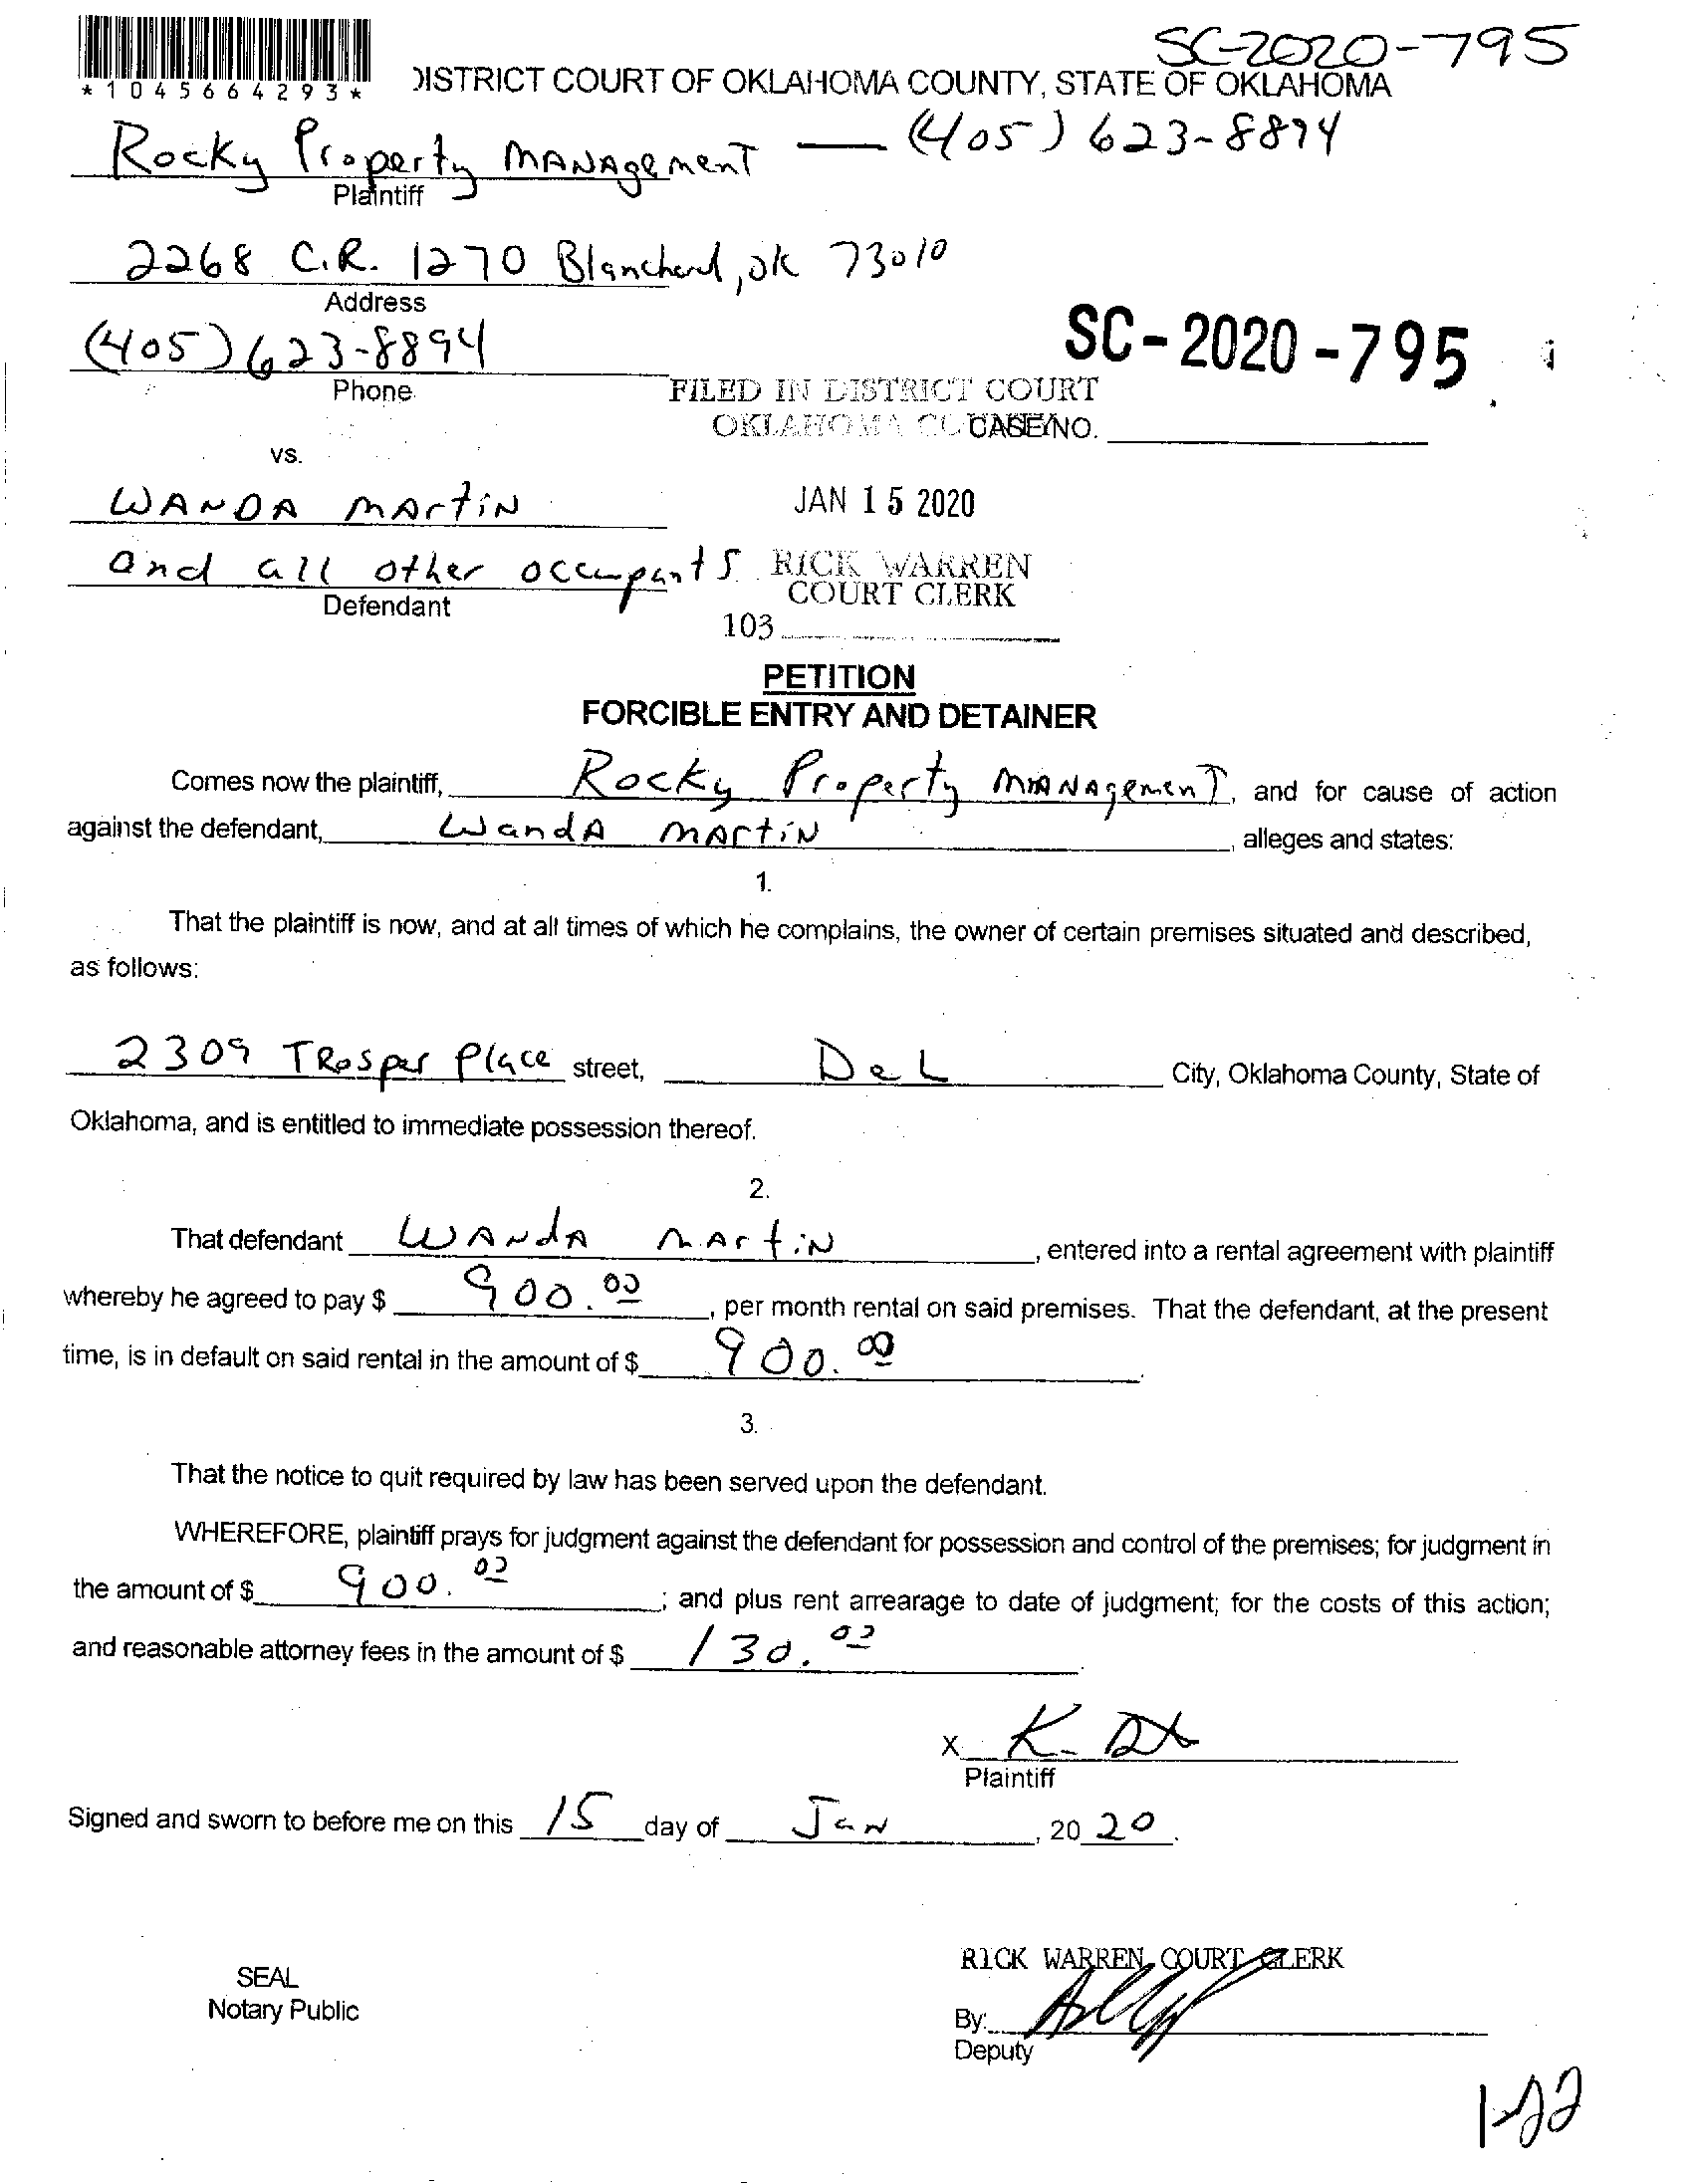 SC-2020-795
*1045664293*
DISTRICT COURT OF OKLAHOMA COUNTY, STATE OF OKLAHOMA
Rocky Property Management — (405) 623-8894
Plaintiff
2268 C.R. 1270 Blanchard, OK 73010
Address
(405) 623-8894
Phone
SC-2020-795
FILED IN DISTRICT COURT
OKLAHOMA COUNTY
CASE NO.
vs.
WANDA MARTIN
JAN 15 2020
and all other occupants
RICK WARREN
COURT CLERK
Defendant
103
PETITION
FORCIBLE ENTRY AND DETAINER
Comes now the plaintiff, Rocky Property Management, and for cause of action
against the defendant, Wanda Martin, alleges and states:
1.
That the plaintiff is now, and at all times of which he complains, the owner of certain premises situated and described,
as follows:
2309 Trosper Place street, Del City, Oklahoma County, State of
Oklahoma, and is entitled to immediate possession thereof.
2.
That defendant Wanda Martin, entered into a rental agreement with plaintiff
whereby he agreed to pay $ 900.00, per month rental on said premises. That the defendant, at the present
time, is in default on said rental in the amount of $ 900.00.
3.
That the notice to quit required by law has been served upon the defendant.
WHEREFORE, plaintiff prays for judgment against the defendant for possession and control of the premises; for judgment in
the amount of $ 900.00; and plus rent arrearage to date of judgment; for the costs of this action;
and reasonable attorney fees in the amount of $ 130.00.
X
Plaintiff
Signed and sworn to before me on this 15 day of Jan, 2020.
RICK WARREN, COURT CLERK
SEAL
Notary Public
By:
Deputy
1-22